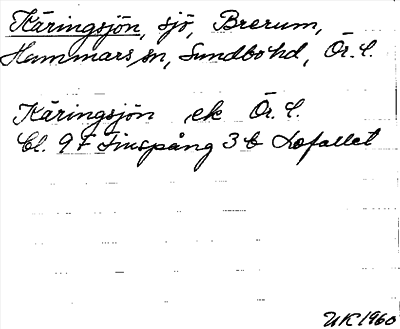 Käringsjön, sjö, Brerum,
Hammars sn, Sundbo hd, Ör. l.
Käringsjön ek Ör. l.
Bl. 9 F Finspång 3 b Lofallet
UK 1960